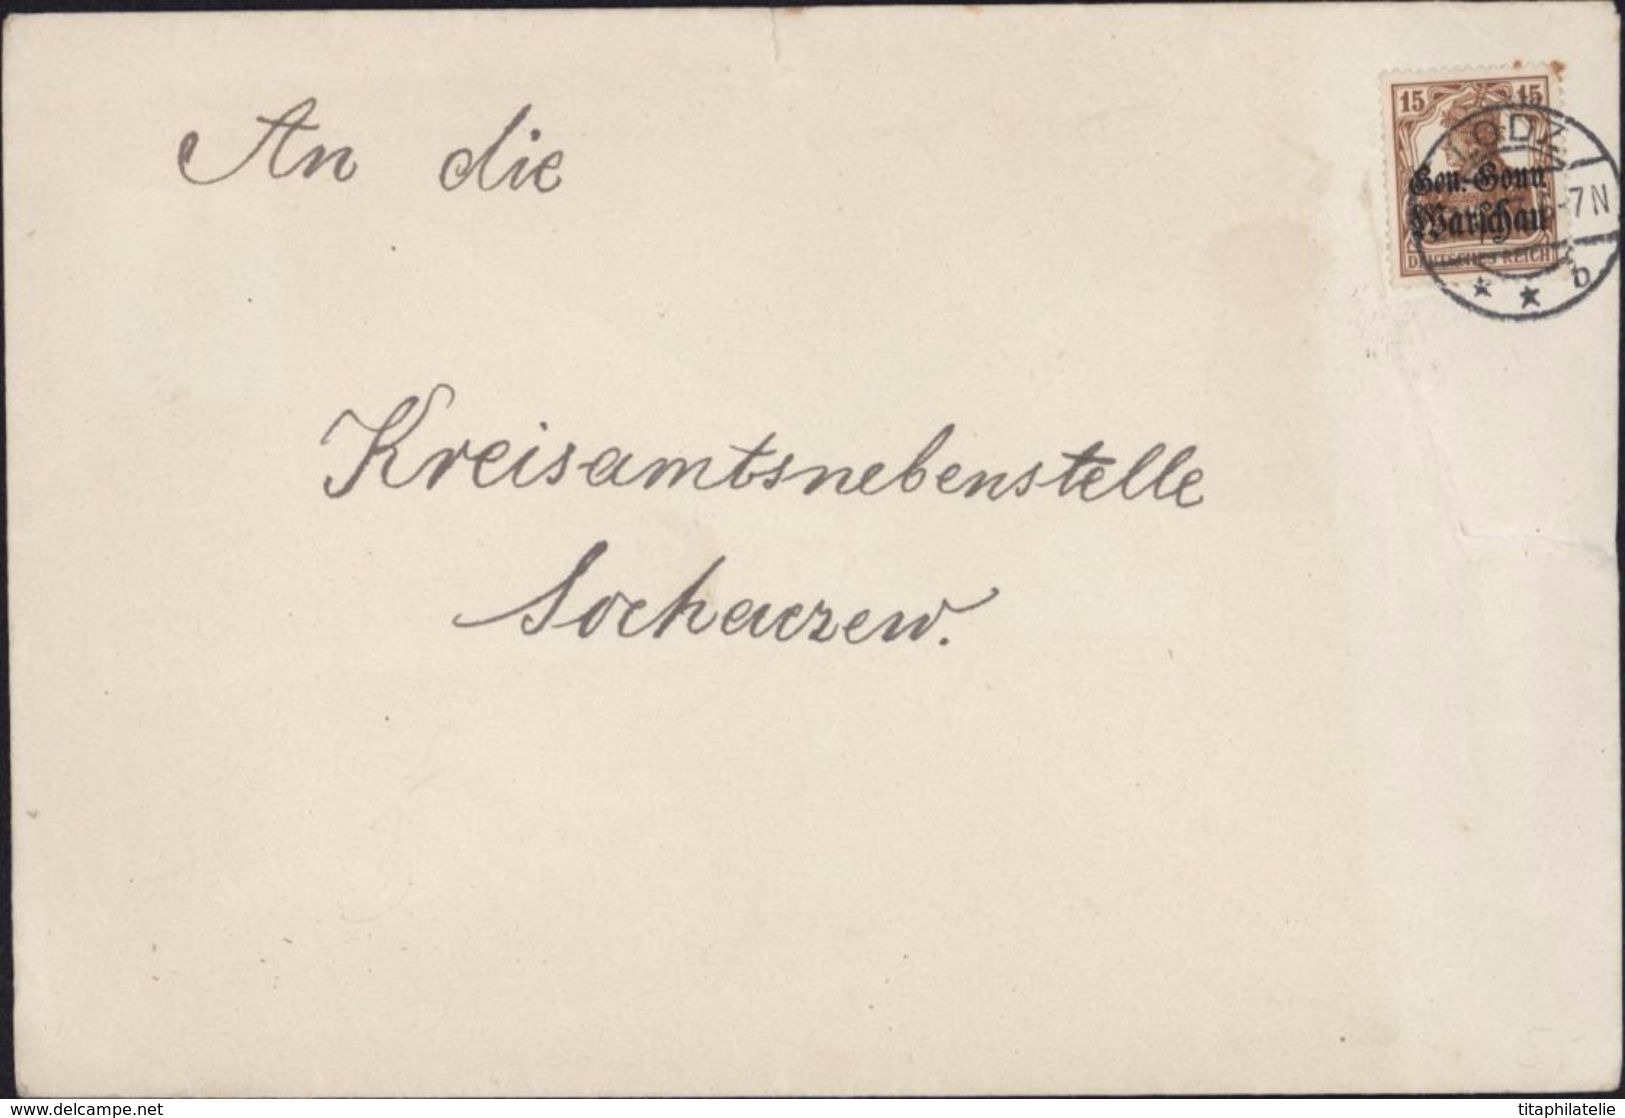 An die
15 15
LODZ
Gen.-Gouv.
Warschau
-7N
DEUTSCHES REICH
* * b
Kreisamtsnebenstelle
Sochaczew.
www.delcampe.net
titaphilatelie